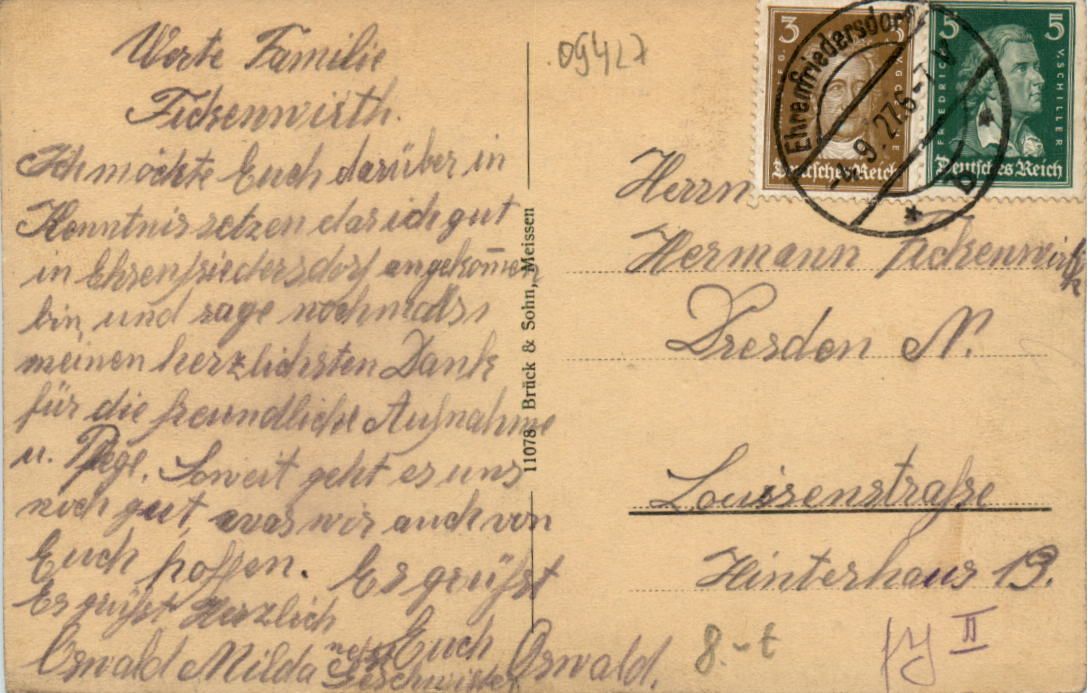 Werte Familie
Fickenwirth.
Ich möchte Euch darüber in
Kenntnis setzen das ich gut
in Ehrenfriedersdorf angekom̅en
bin, und sage nochmals
meinen herzlichsten Dank
für die freundliche Aufnahme
u. Pflege. Soweit geht es uns
noch gut, was wir auch von
Euch hoffen. Es grüßt
Es grüßt Herzlich
Euch
Oswald Milda nebst Geschwister Oswald.
11078 Brück & Sohn, Meissen
09427
3
Deutsches Reich
5 5
FRIEDRICH V. SCHILLER
Deutsches Reich
Ehrenfriedersdorf
9.27.6-7V
b
Herrn
Hermann Fickenwirth
Dresden N.
Louissenstraße
Hinterhaus 19.
8.-t
II